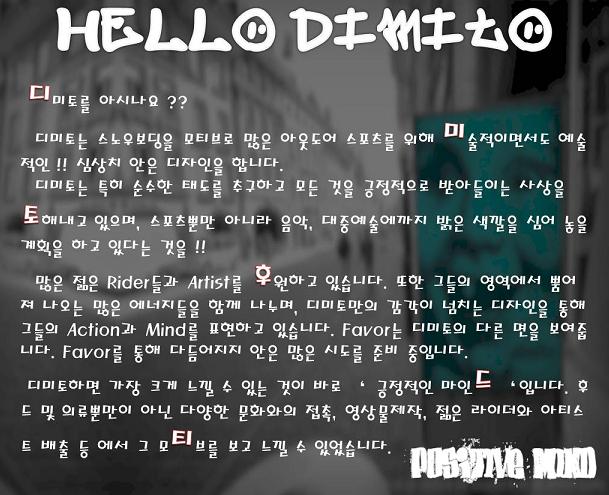 HELLO DIMITO
디미토를 아시나요 ??
디미토는 스노우보딩을 모티브로 많은 아웃도어 스포츠를 위해 미술적이면서도 예술
적인 !! 심상치 안은 디자인을 합니다.
디미토는 특히 순수한 태도를 추구하고 모든 것을 긍정적으로 받아들이는 사상을
토해내고 있으며, 스포츠뿐만 아니라 음악, 대중예술에까지 밝은 색깔을 심어 놓을
계획을 하고 있다는 것을 !!
많은 젊은 Rider들과 Artist를 후원하고 있습니다. 또한 그들의 영역에서 뿜어
져 나오는 많은 에너지들을 함께 나누며, 디미토만의 감각이 넘치는 디자인을 통해
그들의 Action과 Mind를 표현하고 있습니다. Favor는 디미토의 다른 면을 보여줍
니다. Favor를 통해 다듬어지지 안은 많은 시도를 준비 중입니다.
디미토하면 가장 크게 느낄 수 있는 것이 바로 ‘ 긍정적인 마인드 ‘입니다. 후
드 및 의류뿐만이 아닌 다양한 문화와의 접촉, 영상물제작, 젊은 라이더와 아티스
트 배출 등 에서 그 모티브를 보고 느낄 수 있었습니다.
POSITIVE MIND